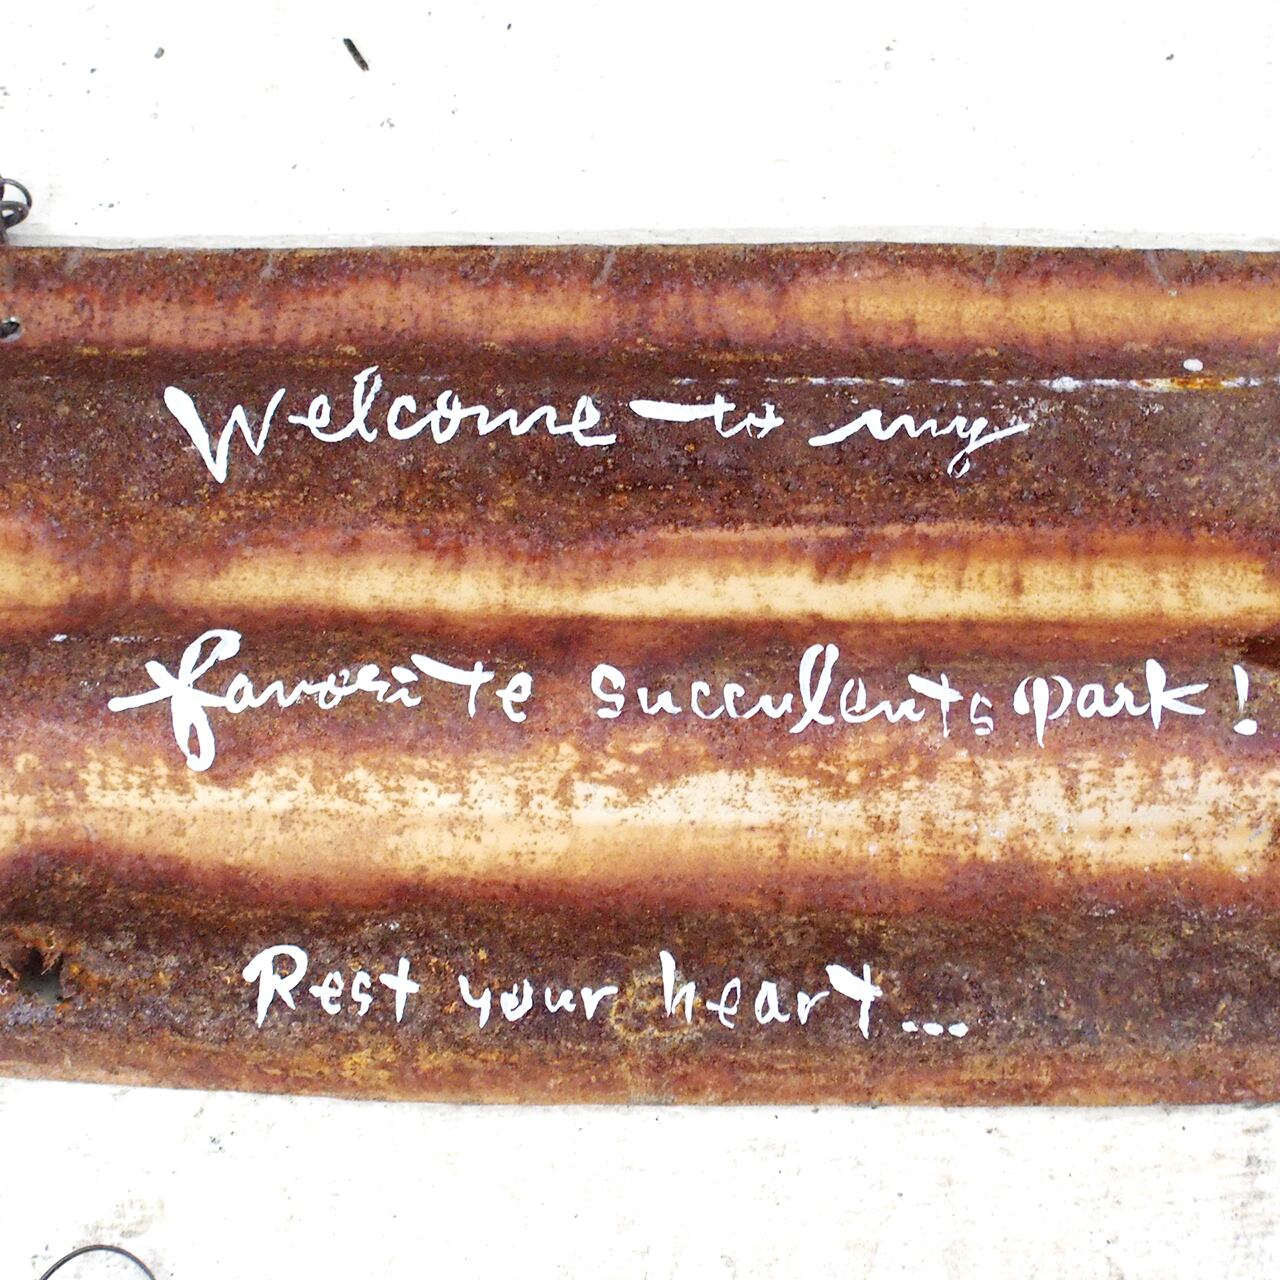 Welcome to my
favorite succulents park!
Rest your heart...